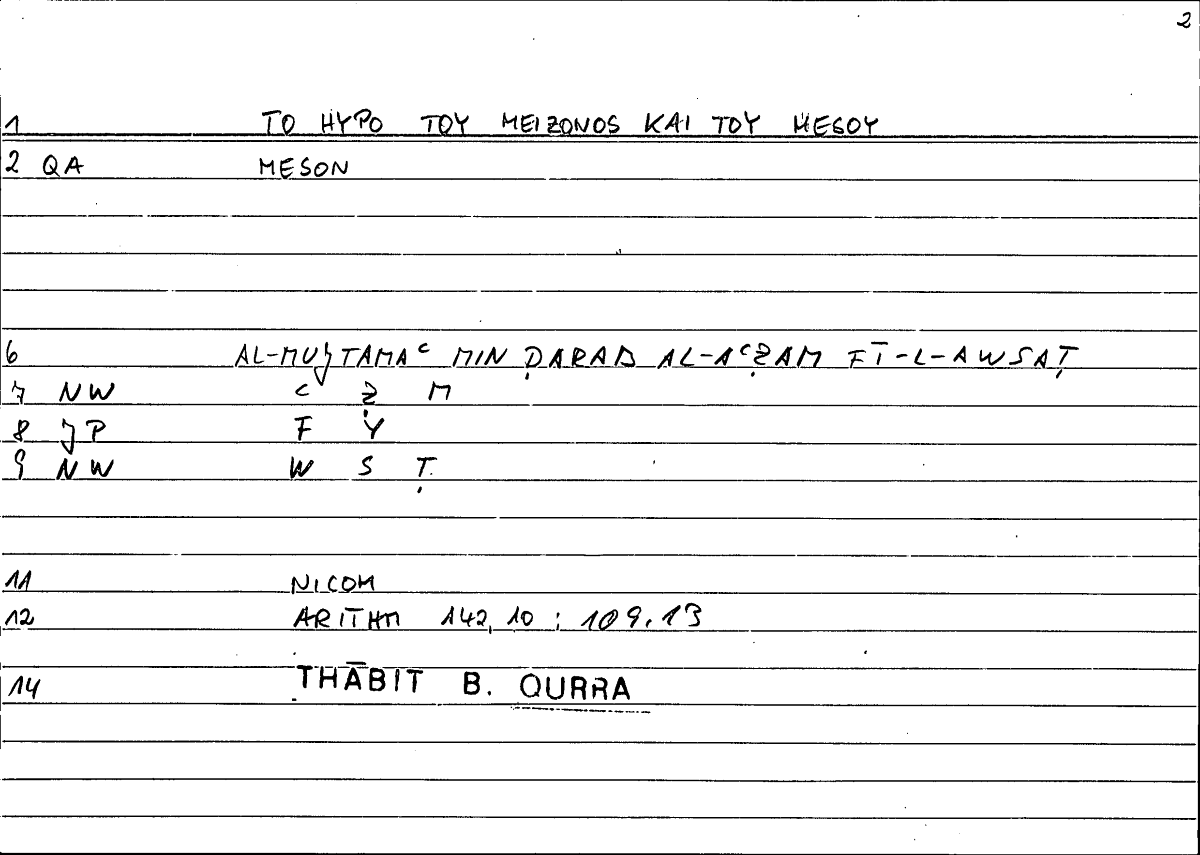 2
1 TO HYPO TOY MEIZONOS KAI TOY MESOY
2 QA MESON
6 AL-MUJTAMAᶜ MIN ḌARAB AL-AᶜẒAM FĪ-L-AWSAṬ
7 NW ᶜ Ẓ M
8 JP F Y
9 NW W S Ṭ
11 NICOM
12 ARITHM 142,10 : 109.13
14 THĀBIT B. QURRA